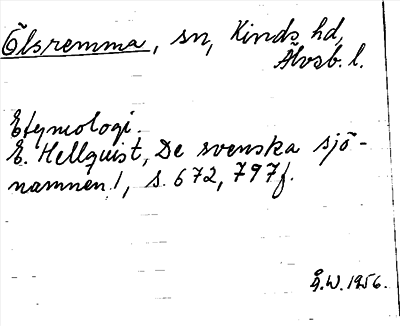 Ölsremma, sn, Kinds hd,
Älvsb. l.
Etymologi.
E. Hellquist, De svenska sjö-
namnen 1, s. 672, 797f.
Å.W. 1956.